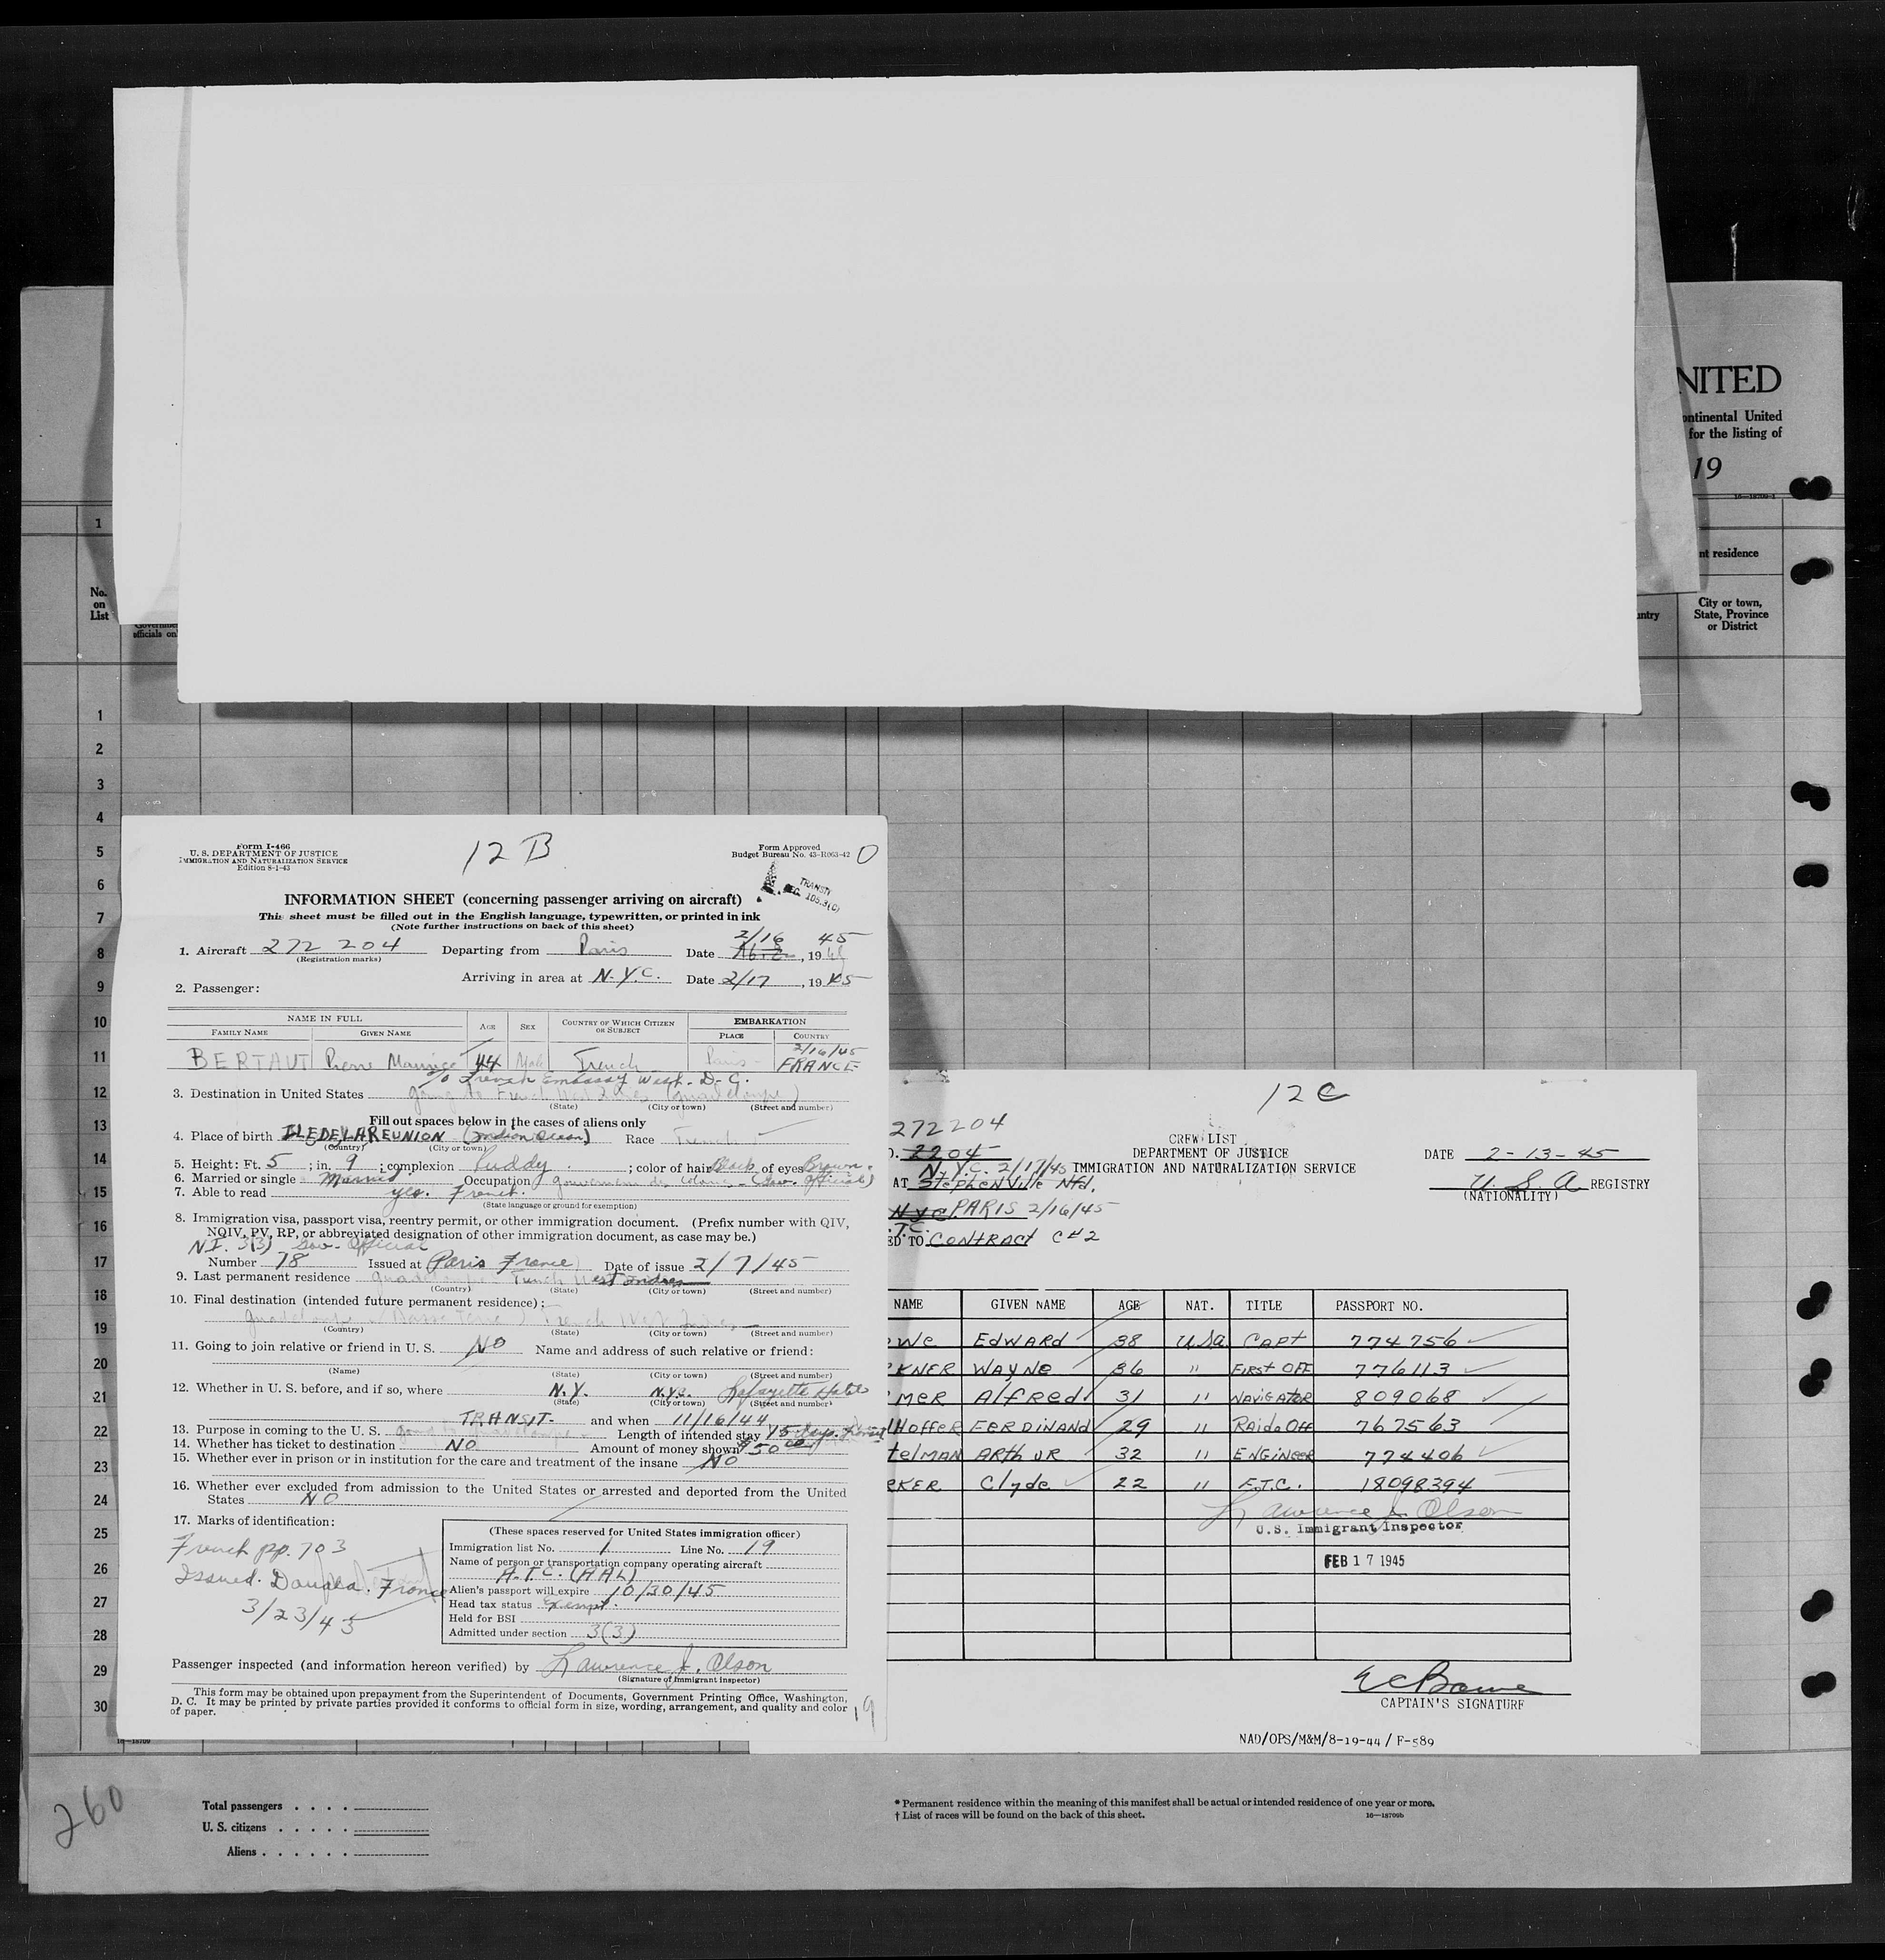 NITED
ontinental United
for the listing of
19
1
No.
on
List
officials on
nt residence
untry
City or town,
State, Province
or District
1
2
3
4
5
6
7
8
9
10
11
12
13
14
15
16
17
18
19
20
21
22
23
24
25
26
27
28
29
30
Form I-466
U. S. DEPARTMENT OF JUSTICE
IMMIGRATION AND NATURALIZATION SERVICE
Edition 8-1-43
12 B
Form Approved
Budget Bureau No. 43-R063-42
O
TRANSIT
SEC. 105.3(C)
INFORMATION SHEET (concerning passenger arriving on aircraft)
This sheet must be filled out in the English language, typewritten, or printed in ink
(Note further instructions on back of this sheet)
2/16 45
1. Aircraft 272 204 Departing from Paris Date , 19
(Registration marks)
Arriving in area at N.Y.C. Date 2/17 , 1945
2. Passenger:
NAME IN FULL AGE SEX COUNTRY OF WHICH CITIZEN OR SUBJECT EMBARKATION
FAMILY NAME GIVEN NAME PLACE COUNTRY
2/16/45
BERTAUT Pierre Maurice 44 Male French Paris FRANCE
c/o French Embassy Wash. D.C.
3. Destination in United States going to French West Indies (Guadeloupe)
(State) (City or town) (Street and number)
Fill out spaces below in the cases of aliens only
4. Place of birth ILE DE LA REUNION (Indian Ocean) Race French
(Country) (City or town)
5. Height: Ft. 5 ; in. 9 ; complexion Ruddy ; color of hair Black of eyes Brown.
6. Married or single Married Occupation gouverneur des colonies - (Gov. Official)
7. Able to read yes. French.
(State language or ground for exemption)
8. Immigration visa, passport visa, reentry permit, or other immigration document. (Prefix number with QIV,
NQIV, PV, RP, or abbreviated designation of other immigration document, as case may be.)
N.I. 3(3) Gov. Official
Number 78 Issued at Paris France Date of issue 2/7/45
9. Last permanent residence Guadeloupe French West Indies
(Country) (State) (City or town) (Street and number)
10. Final destination (intended future permanent residence):
Guadeloupe (Basse Terre) French West Indies
(Country) (State) (City or town) (Street and number)
11. Going to join relative or friend in U. S. NO Name and address of such relative or friend:
(Name) (State) (City or town) (Street and number)
12. Whether in U. S. before, and if so, where N.Y. N.Y.C. Lafayette Hotel
(State) (City or town) (Street and number)
TRANSIT- and when 11/16/44
13. Purpose in coming to the U. S. going to Guadeloupe - Length of intended stay 15 days. Transit
14. Whether has ticket to destination NO Amount of money shown $50.00
15. Whether ever in prison or in institution for the care and treatment of the insane NO
16. Whether ever excluded from admission to the United States or arrested and deported from the United
States NO
17. Marks of identification:
French pp. 703
Issued France
3/23/45
(These spaces reserved for United States immigration officer)
Immigration list No. 1 Line No. 19
Name of person or transportation company operating aircraft
A.T.C. (AAL)
Alien's passport will expire 10/30/45
Head tax status Exempt.
Held for BSI
Admitted under section 3(3)
Passenger inspected (and information hereon verified) by Lawrence J. Olson
(Signature of Immigrant Inspector)
This form may be obtained upon prepayment from the Superintendent of Documents, Government Printing Office, Washington,
D. C. It may be printed by private parties provided it conforms to official form in size, wording, arrangement, and quality and color
of paper.
19
12 C
272204
2204
CREW LIST
DEPARTMENT OF JUSTICE
IMMIGRATION AND NATURALIZATION SERVICE
DATE 2-13-45
N.Y.C. 2/17/45
AT Stephenville Nfd.
U.S.A REGISTRY
(NATIONALITY)
NYC PARIS 2/16/45
.T.C.
ED TO CONTRACT C#2
NAME GIVEN NAME AGE NAT. TITLE PASSPORT NO.
owe EDWARD 38 U.S.A. CAPT 774756
CKNER WAYNE 36 " FIRST OFF 776113
MER Alfred 31 " NAVIGATOR 809068
Hoffer FERDINAND 29 " Raido Off 767563
telMAN ARTHUR 32 " ENGINEER 774406
RKER Clyde 22 " F.T.C. 18098394
Lawrence J. Olson
U.S. Immigrant Inspector
FEB 17 1945
CAPTAIN'S SIGNATURE
NAD/OPS/M&M/8-19-44 / F-589
16-18709
260
Total passengers . . . .
U. S. citizens . . . . .
Aliens . . . . . .
* Permanent residence within the meaning of this manifest shall be actual or intended residence of one year or more.
† List of races will be found on the back of this sheet. 16—18709b